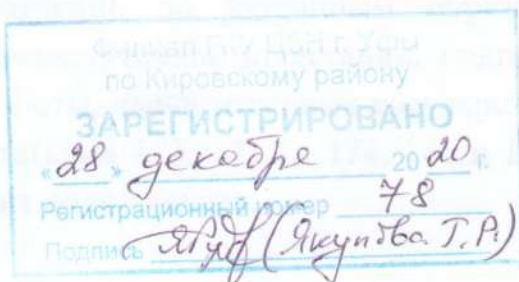 Филиал ГКУ ЦЗН г. Уфы
по Кировскому району
ЗАРЕГИСТРИРОВАНО
«28» декабря 2020 г.
Регистрационный номер 78
Подпись (Якупова Т.Р.)